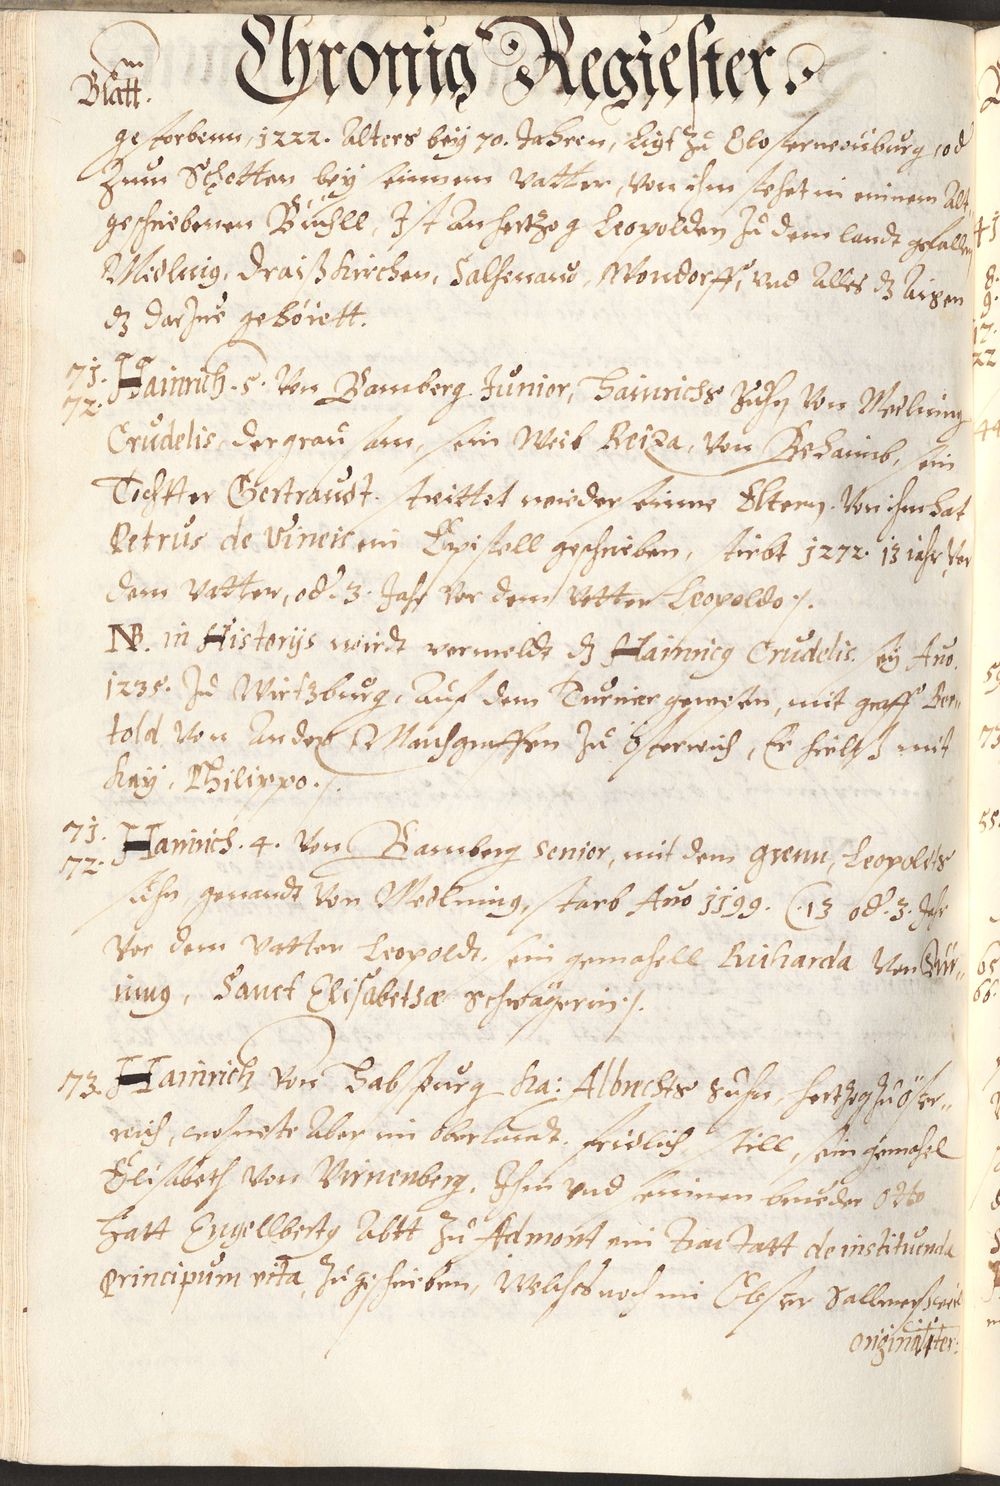 Chronig Regiester.
Blatt.
gestorbenn, 1222. Alters beÿ 70. Jahren, ligt zu Closterneuburg, od
Zum Schotten beÿ seinem Vatter, von ihm stehet in einem Alt
geschriebenen Büchll, Ist an hertzog Leopolden zu dem landt gefallen
Medling, Draißkirchen, Salhenaw, Wondorff, vnd Alles dz Aigen
dz darzue gehörett.
71.
72.
Hainrich. 5. von Bamberg. Junior, Hainrichs Suhn von Medling
Crudelis, der grausam, sein Weib Reiza, von Behaimb, sein
Tochtter Gertraudt. strittet wieder seine Eltern. Von ihm hat
Petrus de Vineis ein Epistell geschrieben, stirbt 1272. 13 iahr Vor
dem Vatter, od. 3. Jahr vor dem Vetter Leopoldo ./.
NB. in Historijs wirdt vermeldt dz Hainrich Crudelis. seÿ Ano.
1235. zu Wirtzburg, auf dem Turnier gewesen, mit graff Ber„
told von Andex Marchgraffen zu Österreich, Er hielts mit
Kaÿ. Philippo ./.
71.
72.
Hainrich. 4. von Bamberg senior, mit dem grenn, Leopoldts
suhn, genandt von Medling, starb Ano 1199. (. 13 od. 3. Jahr
vor dem Vatter Leopoldt. sein gemahell Richarda von Dür„
ing, Sanct Elisabethæ Schwägerin ./.
73.
Hainrich von Habspurg Ka: Albrechts Suhn, hertzog zu Öster„
reich, wohnete aber im Oberlandt. fridlich, still, sein gemahel
Elisabeth von Virnenberg, Ihm vnd seinen brueder Otto
hatt Engellbertg Abtt zu Admont ein Tractatt de instituenda
Principum vita, zugeschrieben, Welches noch im Closter
originaliter: